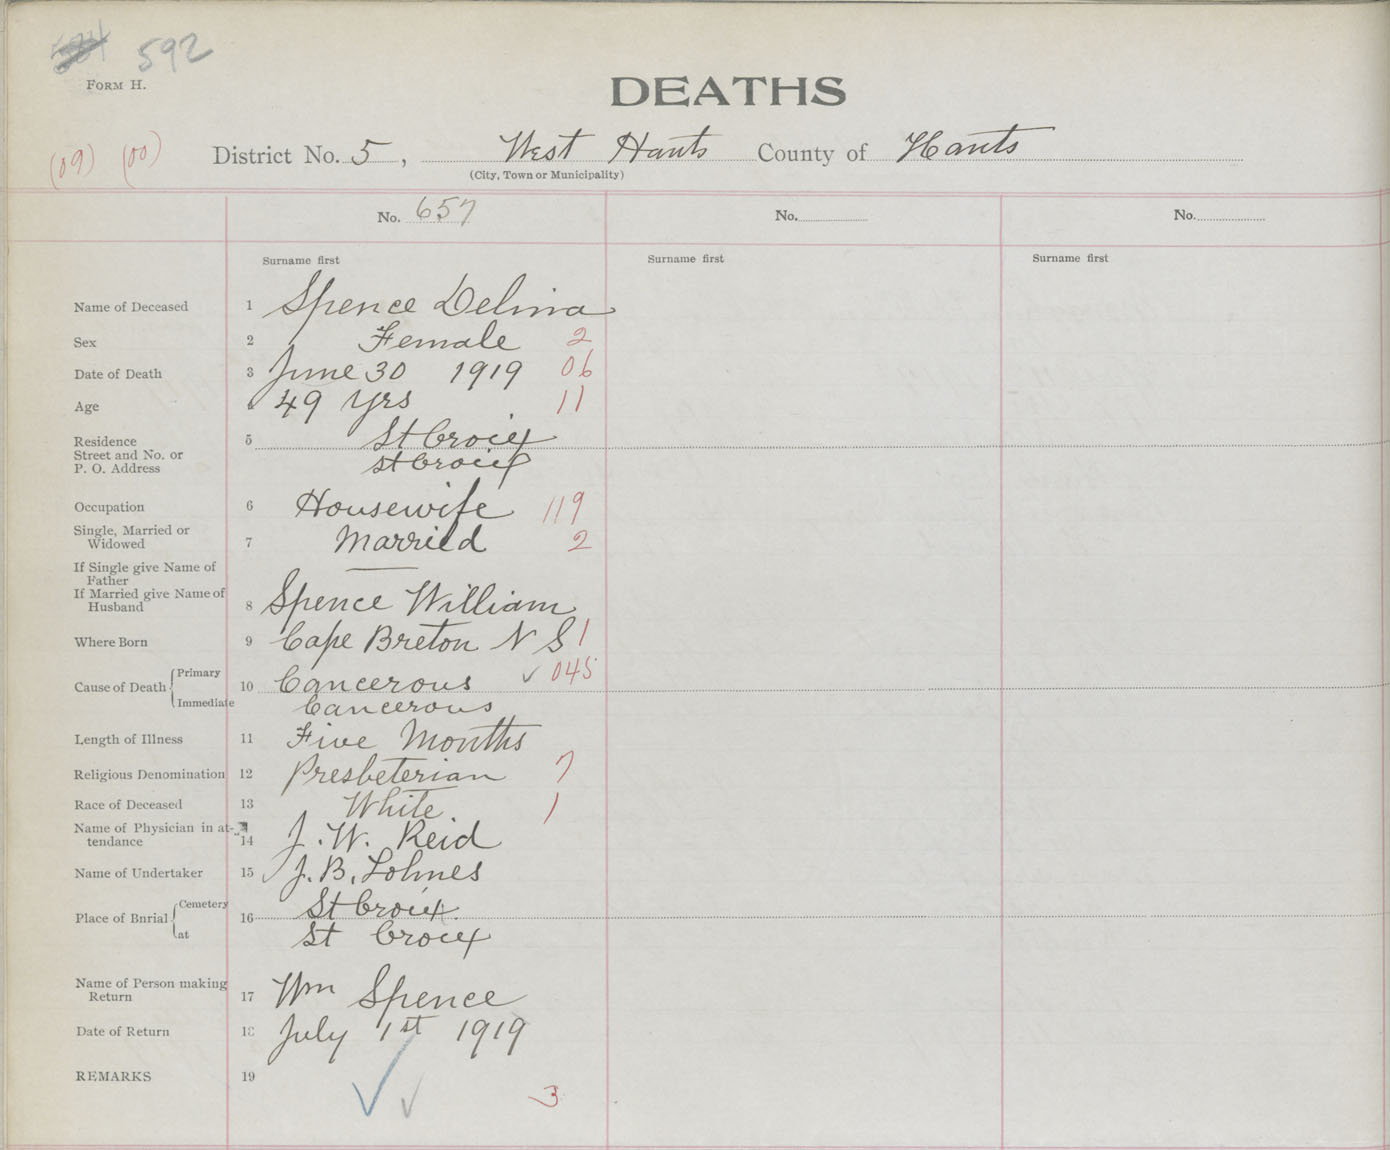 592
FORM H.
DEATHS
(09) (00) District No. 5, West Hants County of Hants
(City, Town or Municipality)
No. 657 No. No.
Surname first Surname first Surname first
Name of Deceased 1 Spence Delina
Sex 2 Female 2
Date of Death 3 June 30 1919 06
Age 49 yrs 11
Residence 5 St Croix
Street and No. or
P. O. Address St Croix
Occupation 6 Housewife 119
Single, Married or
Widowed 7 Married 2
If Single give Name of
Father
If Married give Name of
Husband 8 Spence William
Where Born 9 Cape Breton N S 1
Cause of Death Primary 10 Cancerous ✓ 045
Immediate Cancerous
Length of Illness 11 Five Months
Religious Denomination 12 Presbeterian 7
Race of Deceased 13 White 1
Name of Physician in at-
tendance 14 J. W. Reid
Name of Undertaker 15 J. B. Lohnes
Place of Bnrial Cemetery 16 St Croix
at St Croix
Name of Person making
Return 17 Wm Spence
Date of Return 18 July 1st 1919
REMARKS 19
3